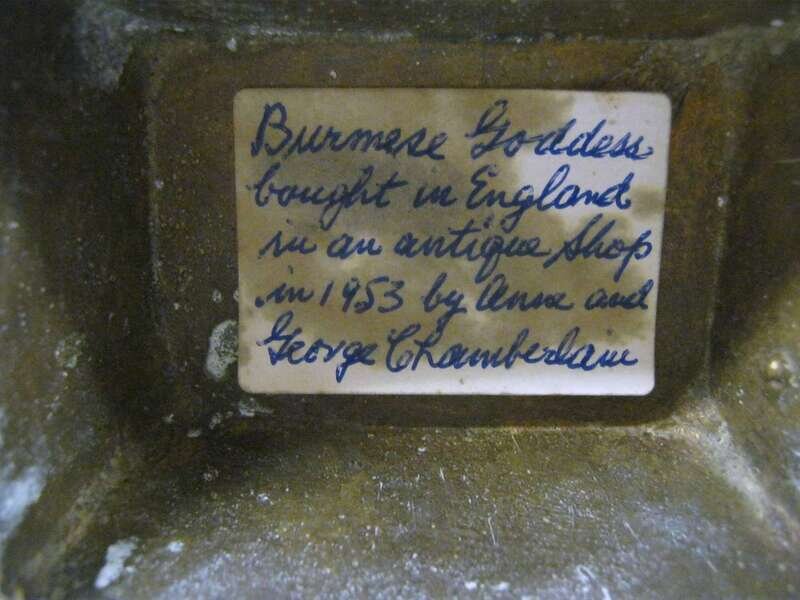 Burmese Goddess
bought in England
in an antique shop
in 1953 by Anne and
George Chamberlain